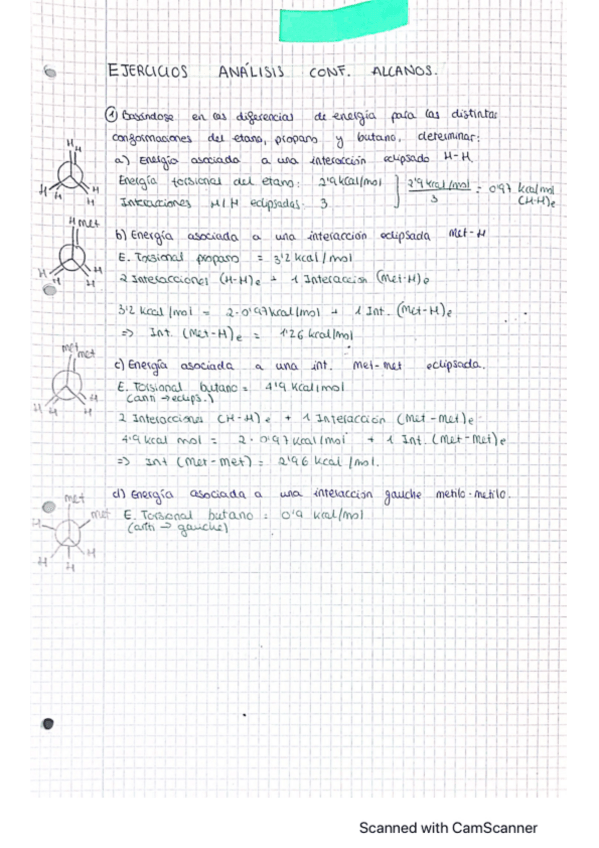 EJERCICIOS ANÁLISIS CONF. ALCANOS.
① Basándose en las diferencias de energía para las distintas
conformaciones del etano, propano y butano, determinar:
a) Energía asociada a una interacción eclipsada H-H.
Energía torsional del etano: 2'9 kcal/mol
Interacciones H/H eclipsadas: 3
2'9 kcal/mol / 3 = 0'97 kcal/mol (H-H)e
b) Energía asociada a una interacción eclipsada Met-H
E. Torsional propano = 3'2 kcal/mol
2 Interacciones (H-H)e + 1 Interacción (Met-H)e
3'2 kcal/mol = 2·0'97 kcal/mol + 1 Int. (Met-H)e
=> Int. (Met-H)e = 1'26 kcal/mol
c) Energía asociada a una int. Met-met eclipsada.
E. Torsional butano = 4'9 kcal/mol
(anti → eclips.)
2 Interacciones (H-H)e + 1 Interacción (Met-Met)e
4'9 kcal mol = 2·0'97 kcal/mol + 1 Int. (Met-Met)e
=> Int (Met-Met) = 2'96 kcal/mol.
d) Energía asociada a una interacción gauche metilo-metilo.
E. Torsional butano = 0'9 kcal/mol
(anti → gauche)
H H
H H
H H
H met
H H
H H
met met
H H
H H
met
met
H
H H
H
Scanned with CamScanner